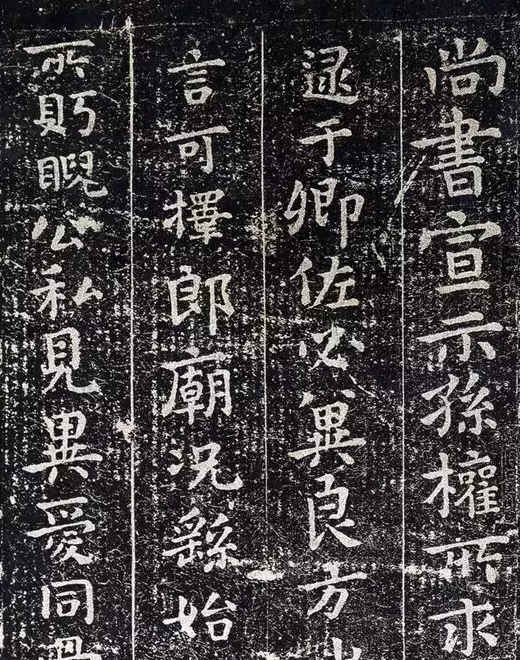 尚書宣示孫權所求
逮于卿佐必冀良方
言可擇郎廟況繇始
所貯睨公私見異愛同